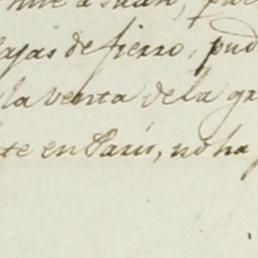 a Juan,
cajas de fierro, pud
la venta de la gr
te en Paris, no ha